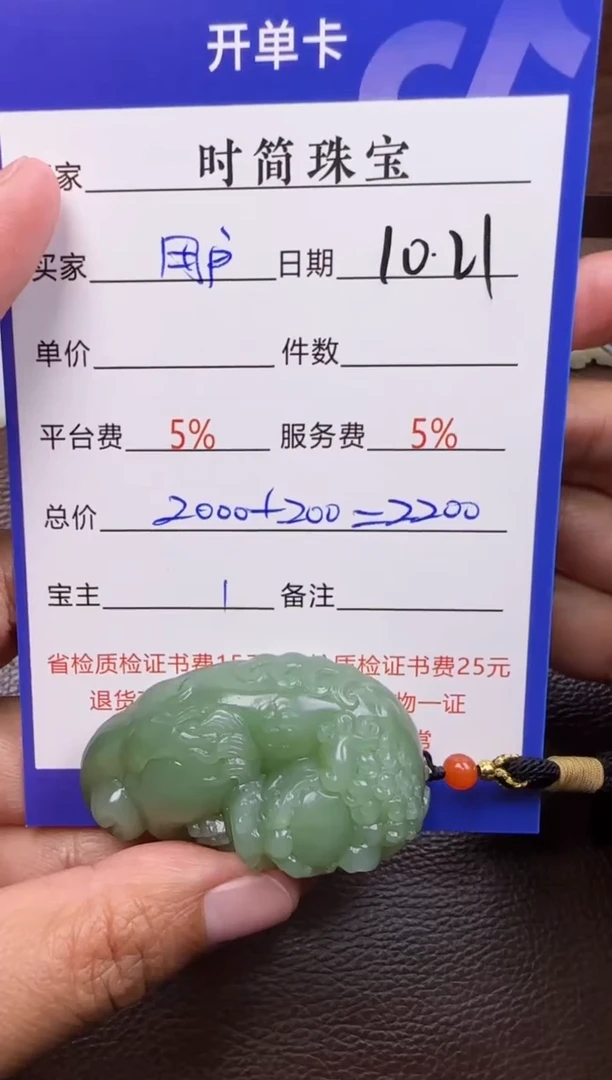 开单卡
家 时简珠宝
买家 用户 日期 10·21
单价 件数
平台费 5% 服务费 5%
总价 2000+200=2200
宝主 1 备注
省检质检证书费15 质检证书费25元
退货 物一证